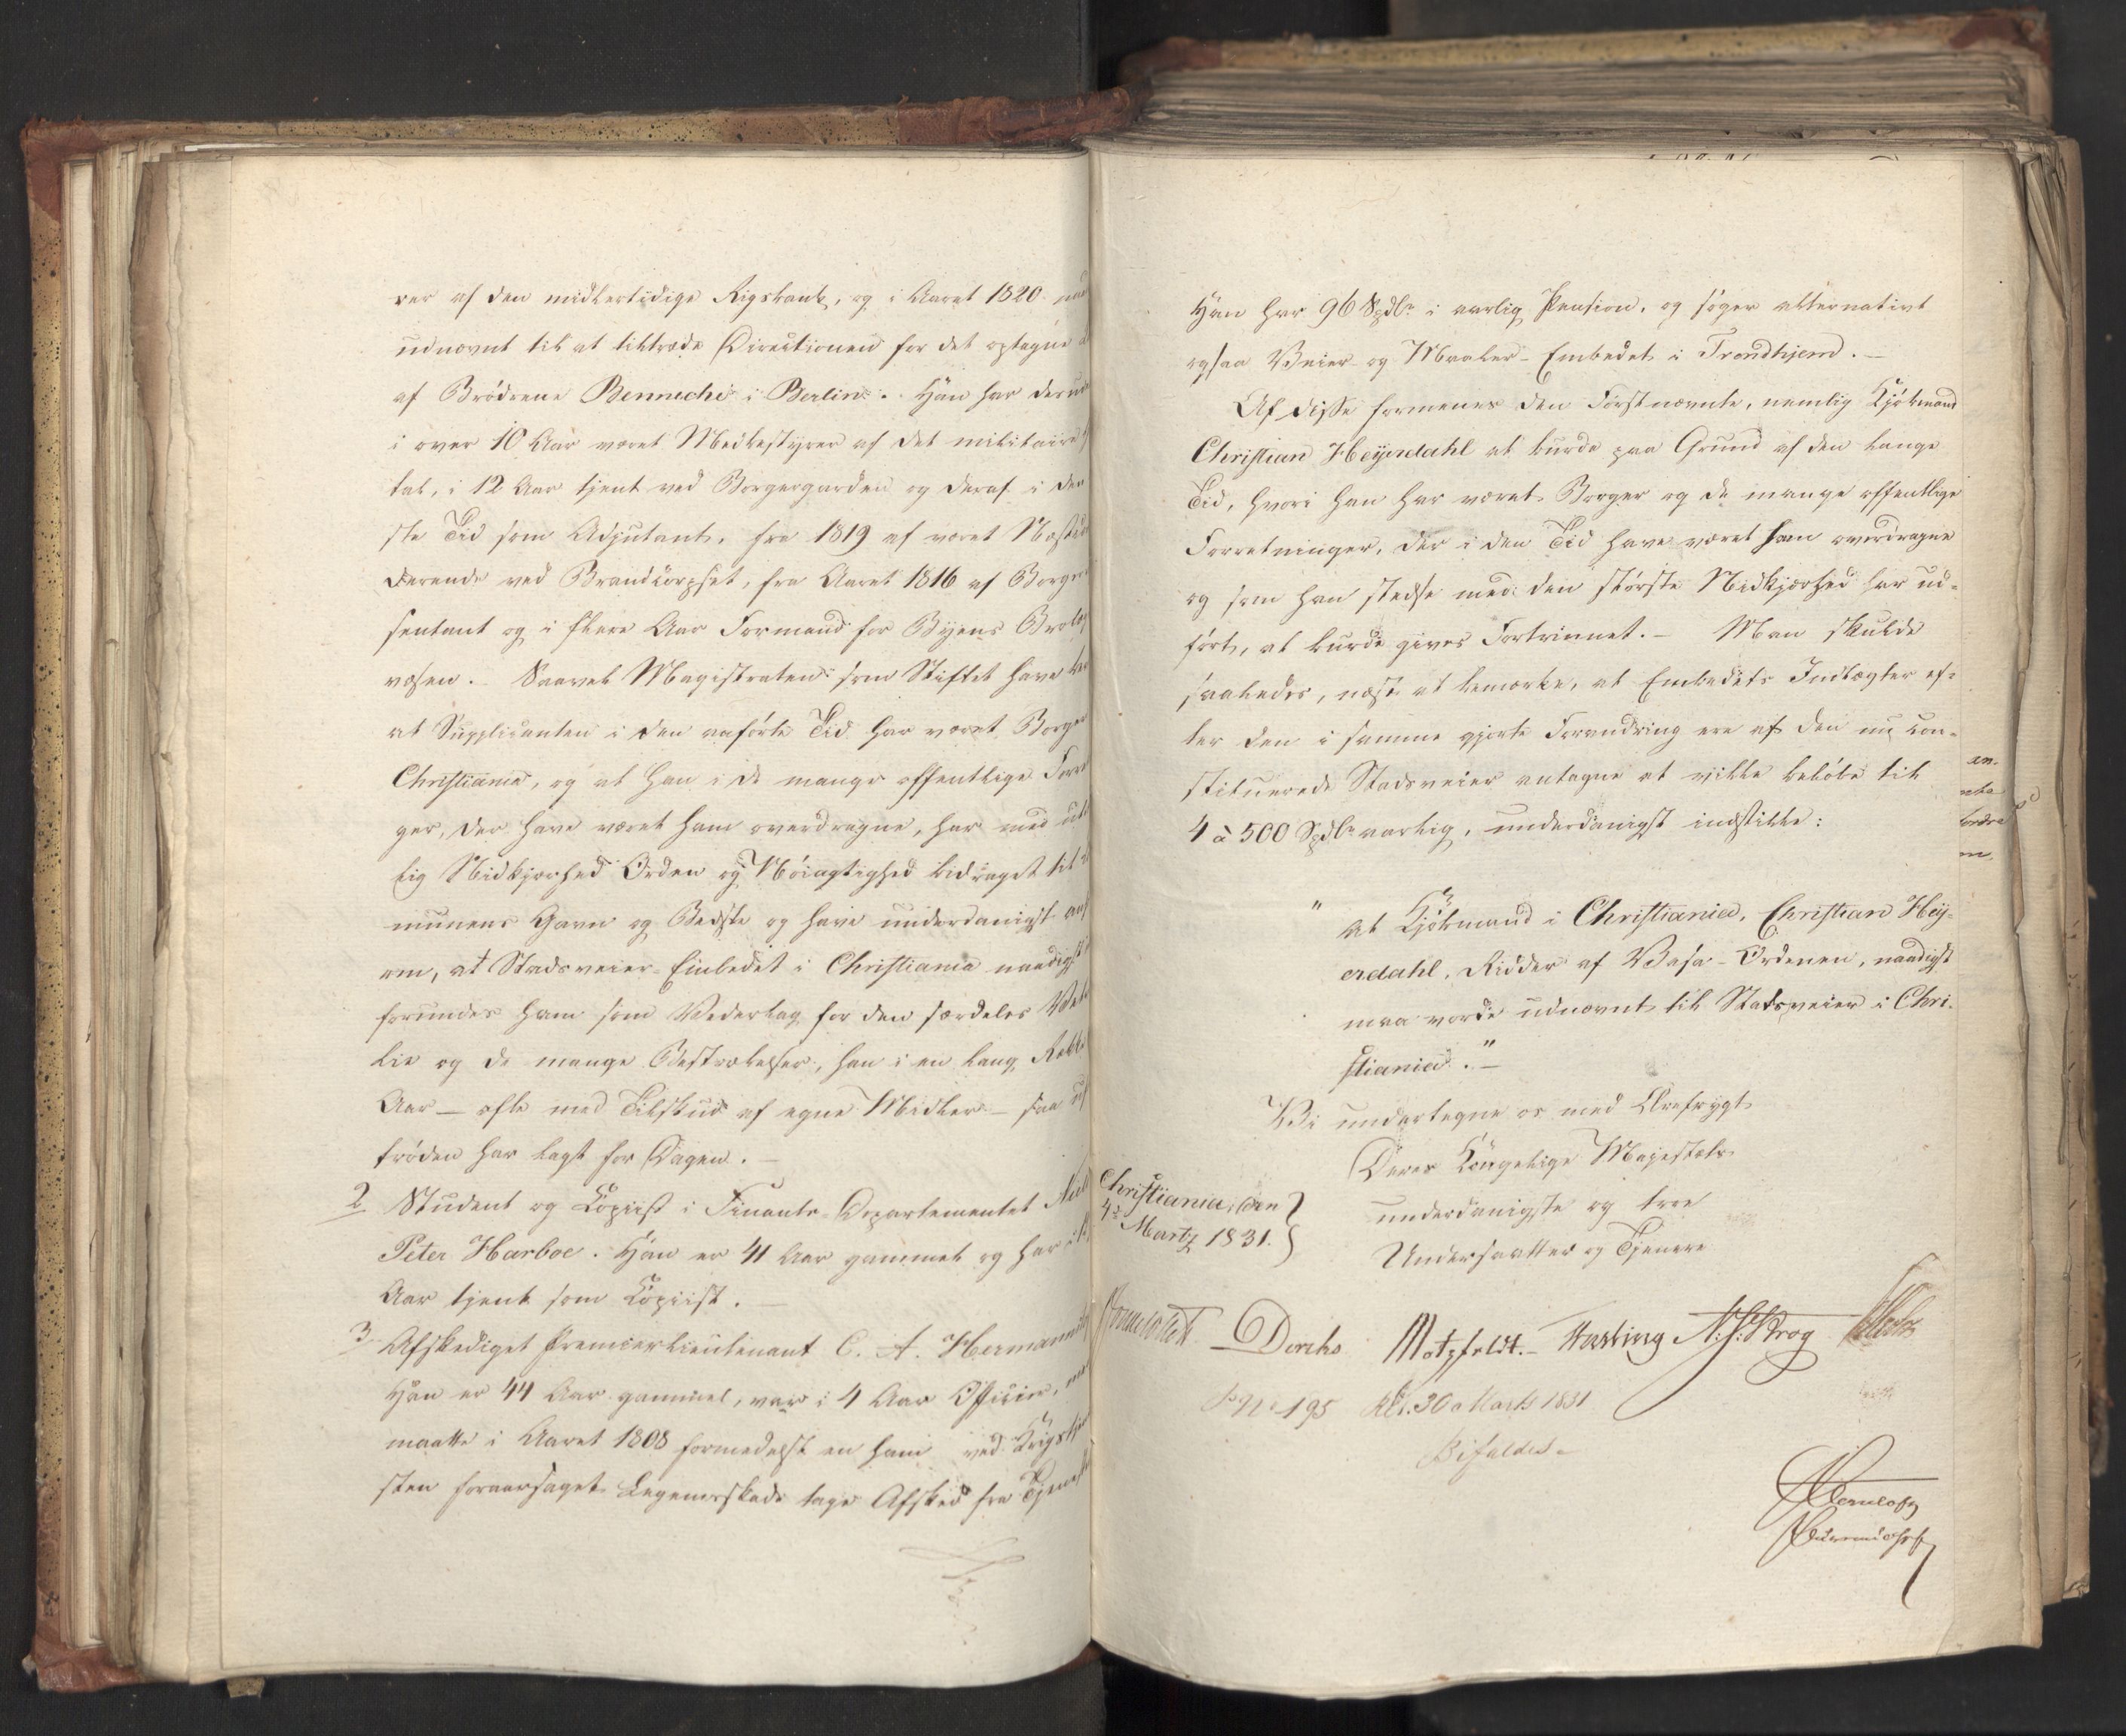 rer af den midlertidige Rigsbank, og i Aaret 1820
udnævnt til at tiltræde Directionen for det optagne
af Brödrene Bennecke i Berlin. Han har
i over 10 Aar været Medbestyrer af det militaire
tal, i 12 Aar tjent ved Borgergarden og deraf i den
ste Tid som Adjutant, fra 1819 af været
derende ved Brandcorpset, fra Aaret 1816 af
sentant og i flere Aar Formand for Byens
væsen. Saavel Magistraten som Stiftet have
at Supplicanten i den anförte Tid har været Borger
Christiania, og at han i de mange offentlige
ger, der have været ham overdragne, har med
lig Nidkjærhed Orden og Nöiagtighed bidraget til
munens Gavn og Bedste og have underdanigst
om, at Stadsveier-Embedet i Christiania naadigst
forundes ham som Vederlag for den særdeles
lie og de mange Bestræbelser, han i en lang Række
Aar – ofte med Tilskud af egne Midler – saa
tröden har lagt for Dagen. –
2 Student og Copiist i Finants-Departementet
Peter Harboe. Han er 41 Aar gammel og har
Aar tjent som Copiist. –
3 Afskediget Premierlieutenant C. A.
Han er 44 Aar gammel, var i 4 Aar Officier,
maatte i Aaret 1808 formedelst en ham ved
sten foraarsaget Legemsskade tage Afsked fra
Han har 96 Spdlr i aarlig Pension, og söger alternativt
ogsaa Veier- og Maaler-Embedet i Trondhjem. –
Af disse formenes den Förstnævnte, nemlig Kjöbmand
Christian Heyerdahl at burde paa Grund af den lange
Tid, hvori han har været Borger og de mange offentlige
Forretninger, der i den Tid have været ham overdragne
og som han stedse med den störste Nidkjærhed har ud-
fört, at burde gives Fortrinnet. – Man skulde
saaledes, næst at bemærke, at Embedets Indtægter ef-
ter den i samme gjorte Forandring ere af den nu con-
stituerede Stadsveier antagne at ville belöbe til
4 à 500 Spdlr aarlig, underdanigst indstille:
"at Kjöbmand i Christiania, Christian Hey-
erdahl, Ridder af Vasa-Ordenen, naadigst
maa vorde udnævnt til Stadsveier i Chri-
stiania." –
Vi undertegne os med Ærefrygt
Deres Kongelige Majestæts
underdanigste og troe
Undersaatter og Tjenere
Christiania, den
4de Martz 1831.
Diriks Motzfeldt. N. J. Krog
No 195 30 Marts 1831
Bifaldes